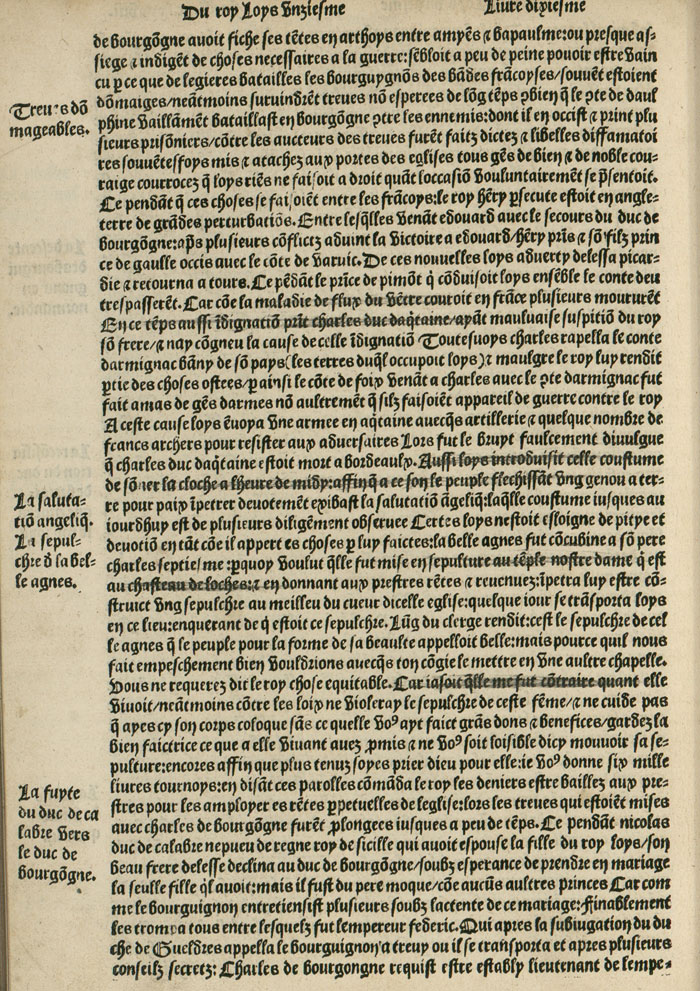 Du roy Loys Unziesme
Livre dixiesme
de bourgõgne avoit fiche ses tẽtes en arthoys entre amyẽs ⁊ bapaulme: ou presque as-
siege ⁊ indigẽt de choses necessaires a la guerre: sẽbloit a peu de peine pouoir estre vain
cu p ce que de legieres batailles les bourguygnõs des bãdes frãcoyses/souvẽt estoient
dõmaiges/neãtmoins survindrẽt treves nõ esperees de lõg tẽps ꝯbien q̃ le ꝯte de daul
phine vaillãmẽt bataillast en bourgõgne ꝯtre les ennemis: dont il en occist ⁊ print plu
sieurs prisõniers/cõtre les aucteurs des treves furẽt faitz dictez ⁊ libelles diffamatoi
res souvẽtesfoys mis ⁊ atachez aux portes des eglises tous gẽs de bien ⁊ de noble cou-
raige courrocez q̃ loys riẽs ne faisoit a droit quãt loccasiõ vouluntairemẽt se p̃sentoit.
Ce pendãt q̃ ces choses se faisoiẽt entre les frãcoys: le roy hẽry psecute estoit en angle-
terre de grãdes perturbatiõs. Entre lesq̃lles venãt edouard avec le secours du duc de
bourgõgne: ap̃s plusieurs cõflictz advint la victoire a edouard/hẽry prĩs ⁊ sõ filz prin
ce de gaulle occis avec le cõte de varvic. De ces nouvelles loys adverty delessa picar-
die ⁊ retourna a tours. Ce pẽdẽt le prĩce de pimõt q̃ cõduisoit loys ensẽble le conte deu
trespasserẽt. Car cõe la maladie de flux du vẽtre couroit en frãce plusieurs mourutẽt
En ce tẽps aussi ĩdignatiõ prĩt charles duc daq̃taine/ayãt mauluaise suspitiõ du roy
sõ frere/⁊ nay cõgneu la cause de celle ĩdignatiõ Toutesuoys charles rapella le conte
darmignac bãny de sõ pays (les terres duq̃l occupoit loys) ⁊ maulgre le roy luy rendit
ptie des choses ostees/p ainsi le cõte de foix venãt a charles avec le ꝯte darmignac fut
fait amas de gẽs darmes nõ aultremẽt q̃ silz faisoiẽt appareil de guerre contre le roy
A ceste cause loys ẽvoya vne armee en aq̃taine avecq̃s artillerie ⁊ quelque nombre de
francs archers pour resister aux adversaires Lors fut le bruyt faulcement divulgue
q̃ charles duc daq̃taine estoit mort a bordeaulx. Aussi loys introduisit celle coustume
de sõner la cloche a lheure de midy: affin q̃ a ce son le peuple flechissãt vng genou a ter-
re pour paix ĩpetrer devotement exibast la salutatiõ ãgeliq̃: laq̃lle coustume iusques au
iourdhuy est de plusieurs diligẽment observee Certes loys nestoit esloigne de pitye et
devotiõ en tãt cõe il appert es choses p luy faictes: la belle agnes fut cõcubine a sõ pere
charles septiesme: pquoy voulut q̃lle fut mise en sepulture au tẽple nostre dame q̃ est
au chasteau de loches: ⁊ en donnant aux prestres rẽtes ⁊ revenuez: ĩpetra luy estre cõ-
struict vng sepulchre au meilleu du cueur dicelle eglise: quelque iour se trãsporta loys
en ce lieu: enquerant de q̃ estoit ce sepulchre. Lũg du clerge rendit: cest le sepulchre de cel
le agnes q̃ le peuple pour la forme de sa beaulte appelloit belle: mais pource quil nous
fait empeschement bien vouldrions avecq̃s ton cõgie le mettre en vne aultre chapelle.
Vous ne requerez dit le roy chose equitable. Car iasoit q̃lle me fut cõtraire quant elle
vivoit/neãtmoins cõtre les loix ne violeray le sepulchre de ceste fẽme/⁊ ne cuide pas
q̃ ayes cy son corps coloque sãs ce quelle voꝰ ayt faict grãs dons ⁊ benefices/gardez la
bien faictrice ce que a elle vivant avez pmis ⁊ ne voꝰ soit loisible dicy mouvoir sa se-
pulture: encores affin que plus tenuz soyes prier dieu pour elle: ie voꝰ donne six mille
livres tournoys: en disãt ces parolles cõmãda le roy les deniers estre baillez aux pre-
stres pour les amployer es rẽtes ppetuelles de leglise: lors les treves qui estoiẽt mises
avec charles de bourgõgne furẽt plongees iusques a peu de tẽps. Ce pendãt nicolas
duc de calabre nepueu de regne roy de sicille qui avoit espouse la fille du roy loys/son
beau frere delesse declina au duc de bourgõgne/soubz esperance de prendre en mariage
la seulle fille q̃l avoit: mais il fust du pere moque/cõe aucũs aultres princes Car com
me le bourguignon entretiensist plusieurs soubz lactente de ce mariage: finablement
les trompa tous entre lesquelz fut lempereur federic. Qui apres la subiugation du du
che de Gueldres appella le bourguignon a treuy ou il se transporta et apres plusieurs
conseilz secretz: Charles de bourgongne requist estre estably lieutenant de lempe-
Treves dõ
mageables.
La saluta-
tiõ angeliq̃.
La sepul-
chre d̃ la bel-
le agnes.
La fuyte
du duc de ca
labre vers
le duc de
bourgõgne.